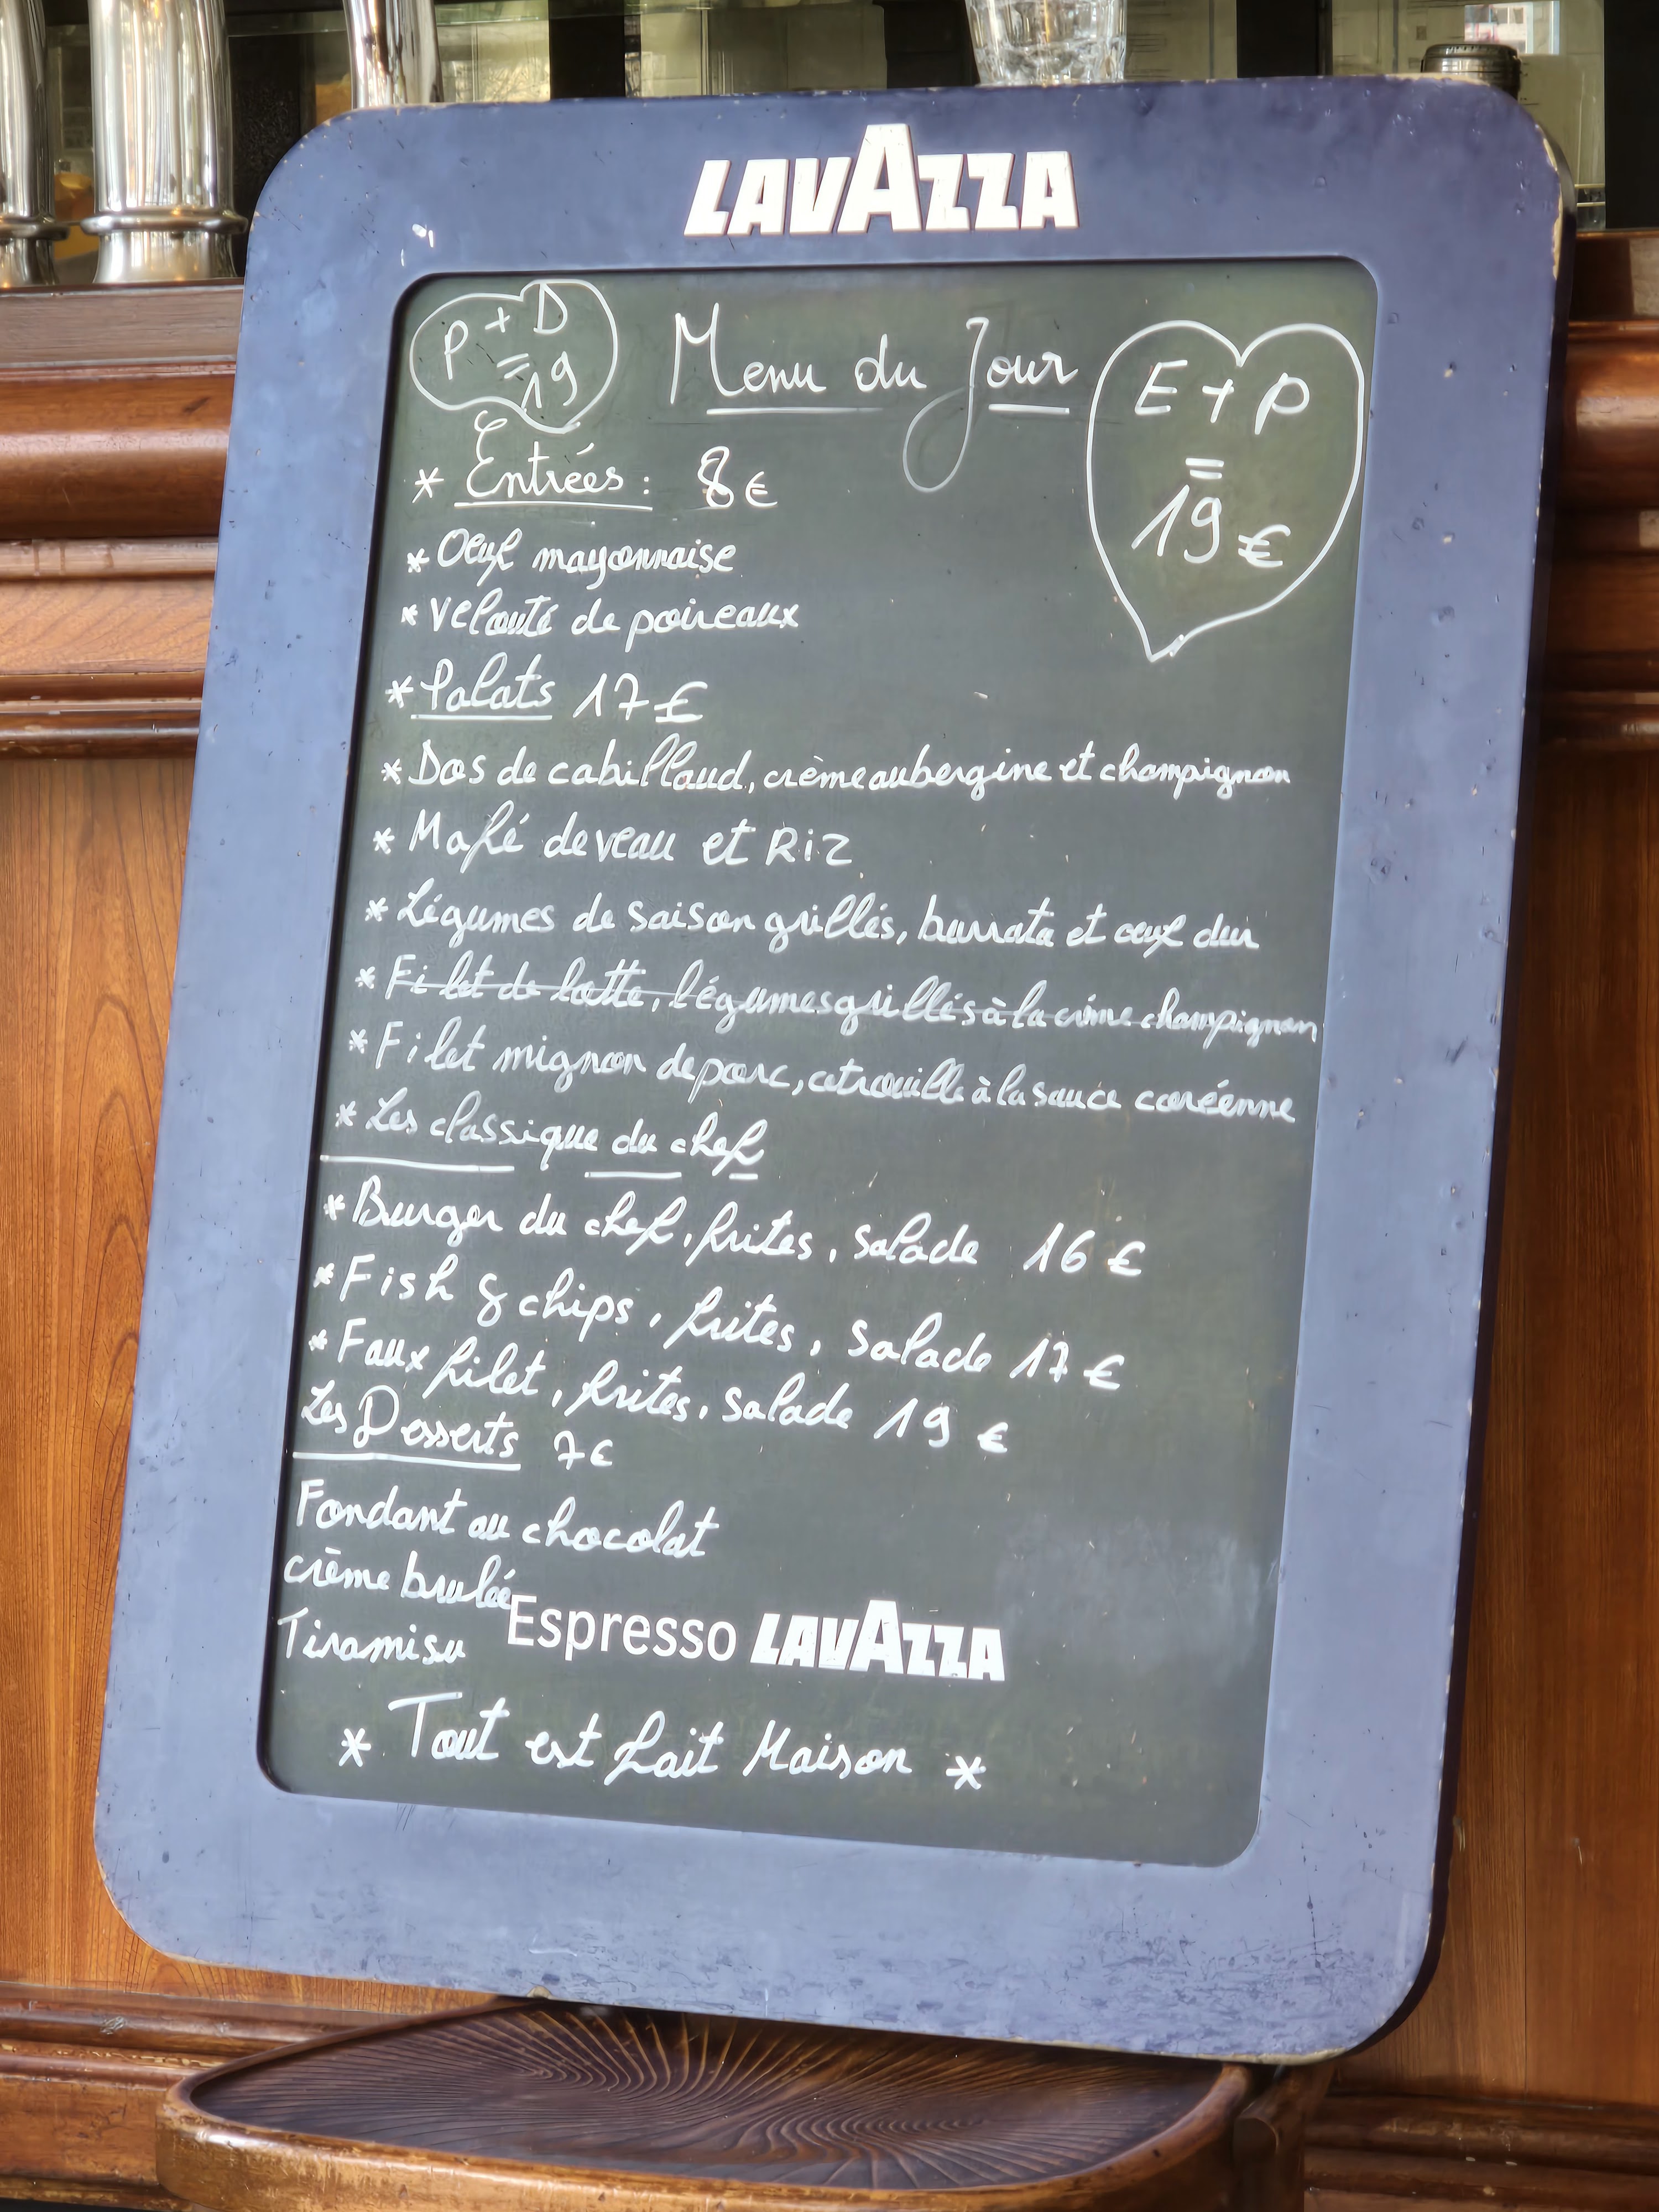 LAVAZZA
P + D
= 19
Menu du Jour
E + P
=
19 €
* Entrées : 8 €
* Oeuf mayonnaise
* Velouté de poireaux
* Palats 17 €
* Dos de cabillaud, crème aubergine et champignon
* Mafé de veau et Riz
* Légumes de saison grillés, burrata et oeuf dur
* Filet de lotte, légumes grillés à la crème champignon
* Filet mignon de porc, citrouille à la sauce coréenne
* Les classique du chef
* Burger du chef, frites, salade 16 €
* Fish & chips, frites, salade 17 €
* Faux filet, frites, salade 19 €
Les Desserts 7 €
Fondant au chocolat
crème brulée
Tiramisu
Espresso LAVAZZA
* Tout est fait Maison *